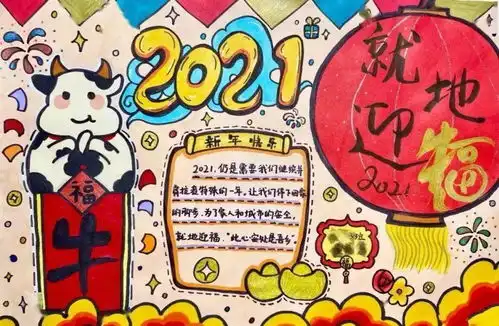 2021
就地
迎福
2021
新年快乐
2021，仍是需要我们继续并
特殊的一年，让我们停下回家
的脚步，为了家人和城市的安全，
就地迎福，"此心安处是吾乡"
福
牛
福